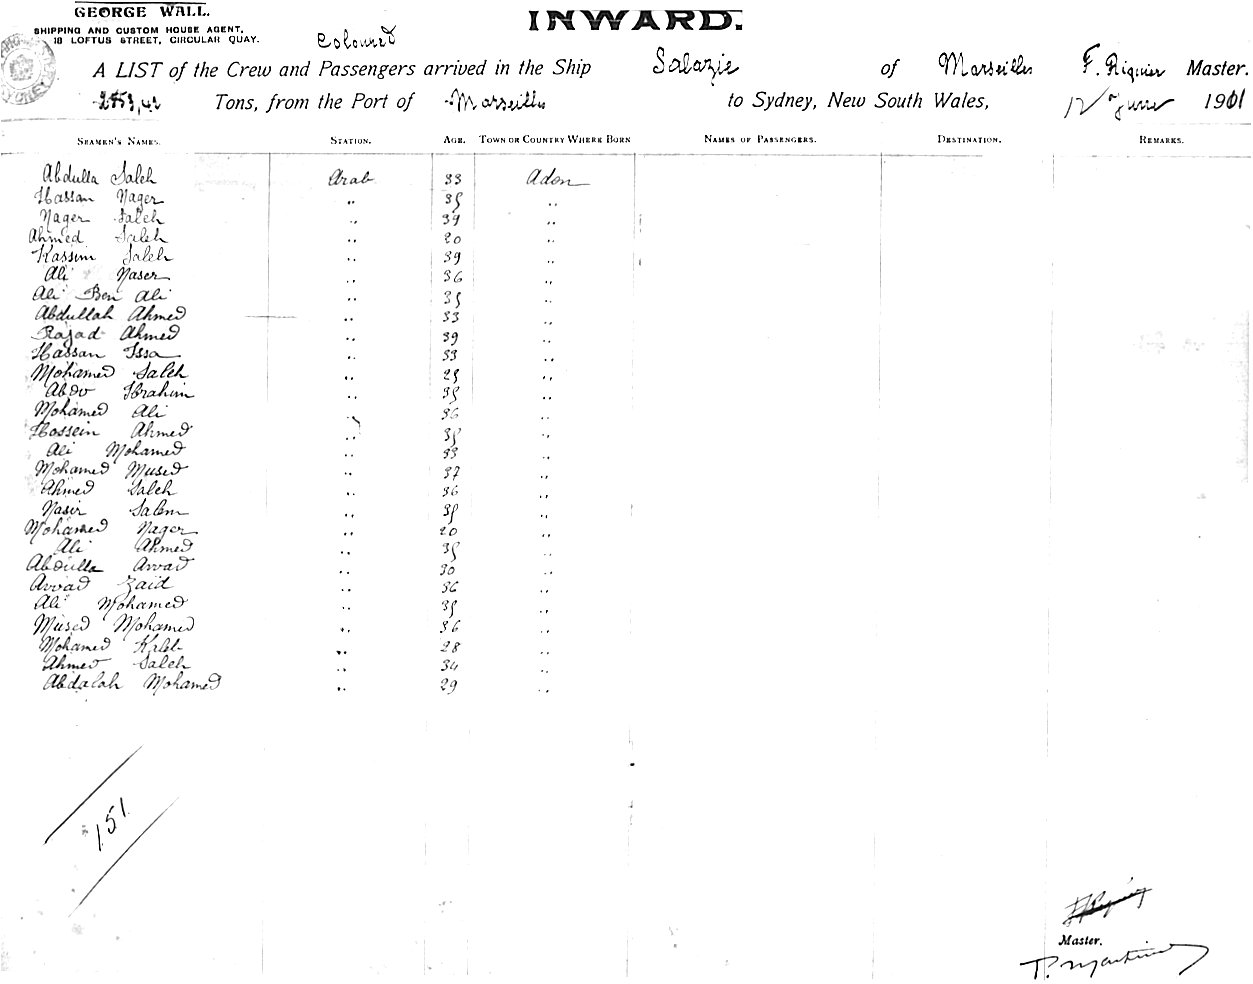 GEORGE WALL.
SHIPPING AND CUSTOM HOUSE AGENT,
18 LOFTUS STREET, CIRCULAR QUAY.
INWARD.
Coloured
A LIST of the Crew and Passengers arrived in the Ship Salazie of Marseilles F. Riquier Master.
Tons, from the Port of Marseilles to Sydney, New South Wales, 12 June 1901
SEAMEN'S NAMES. STATION. AGE. TOWN OR COUNTRY WHERE BORN NAMES OF PASSENGERS. DESTINATION. REMARKS.
Abdulla Saleh Arab 33 Aden
Hassan Nager " 35 "
Nager Saleh " 39 "
Ahmed Saleh " 20 "
Kassim Saleh " 39 "
Ali Naser " 36 "
Ali Ben Ali " 35 "
Abdullah Ahmed " 33 "
Rajad Ahmed " 39 "
Hassan Issa " 33 "
Mohamed Saleh " 25 "
Abdo Ibrahim " 35 "
Mohamed Ali " 36 "
Hossein Ahmed " 35 "
Ali Mohamed " 33 "
Mohamed Mused " 37 "
Ahmed Saleh " 36 "
Nasir Salem " 35 "
Mohamed Nager " 20 "
Ali Ahmed " 35 "
Abdulla Avvad " 30 "
Avvad Zaid " 36 "
Ali Mohamed " 35 "
Mused Mohamed " 36 "
Mohamed " 28 "
Ahmed Saleh " 34 "
Abdalah Mohamed " 29 "
151
Master.